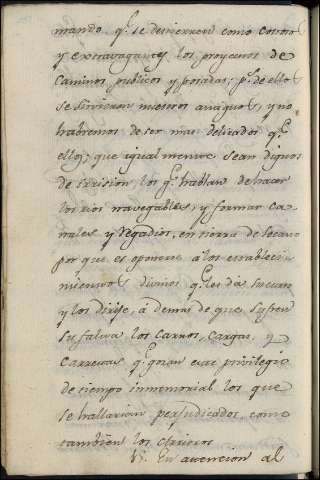 mando q.e se destierren como costoso
y extravagantes los proyectos de
Caminos publicos y posadas; p.r de ello
se sirvieron nuestros antiguos, y no
habremos de ser mas delicados q.e
ellos; que igualmente sean dignos
de irrision, los q.e hablan de hacer
los rios navegables, y formar ca
nales y regadios, en tierra de secano
por que es oponerse á los estableci
mientos divinos q.e les dá
y los dirije, á demas de que sufren
su falta los Carros, Cargas, y
Carretas q.e gozan este privilegio
de tiempo inmemorial los que
se hallarian perjudicados, como
tambien los
V. En atencion al